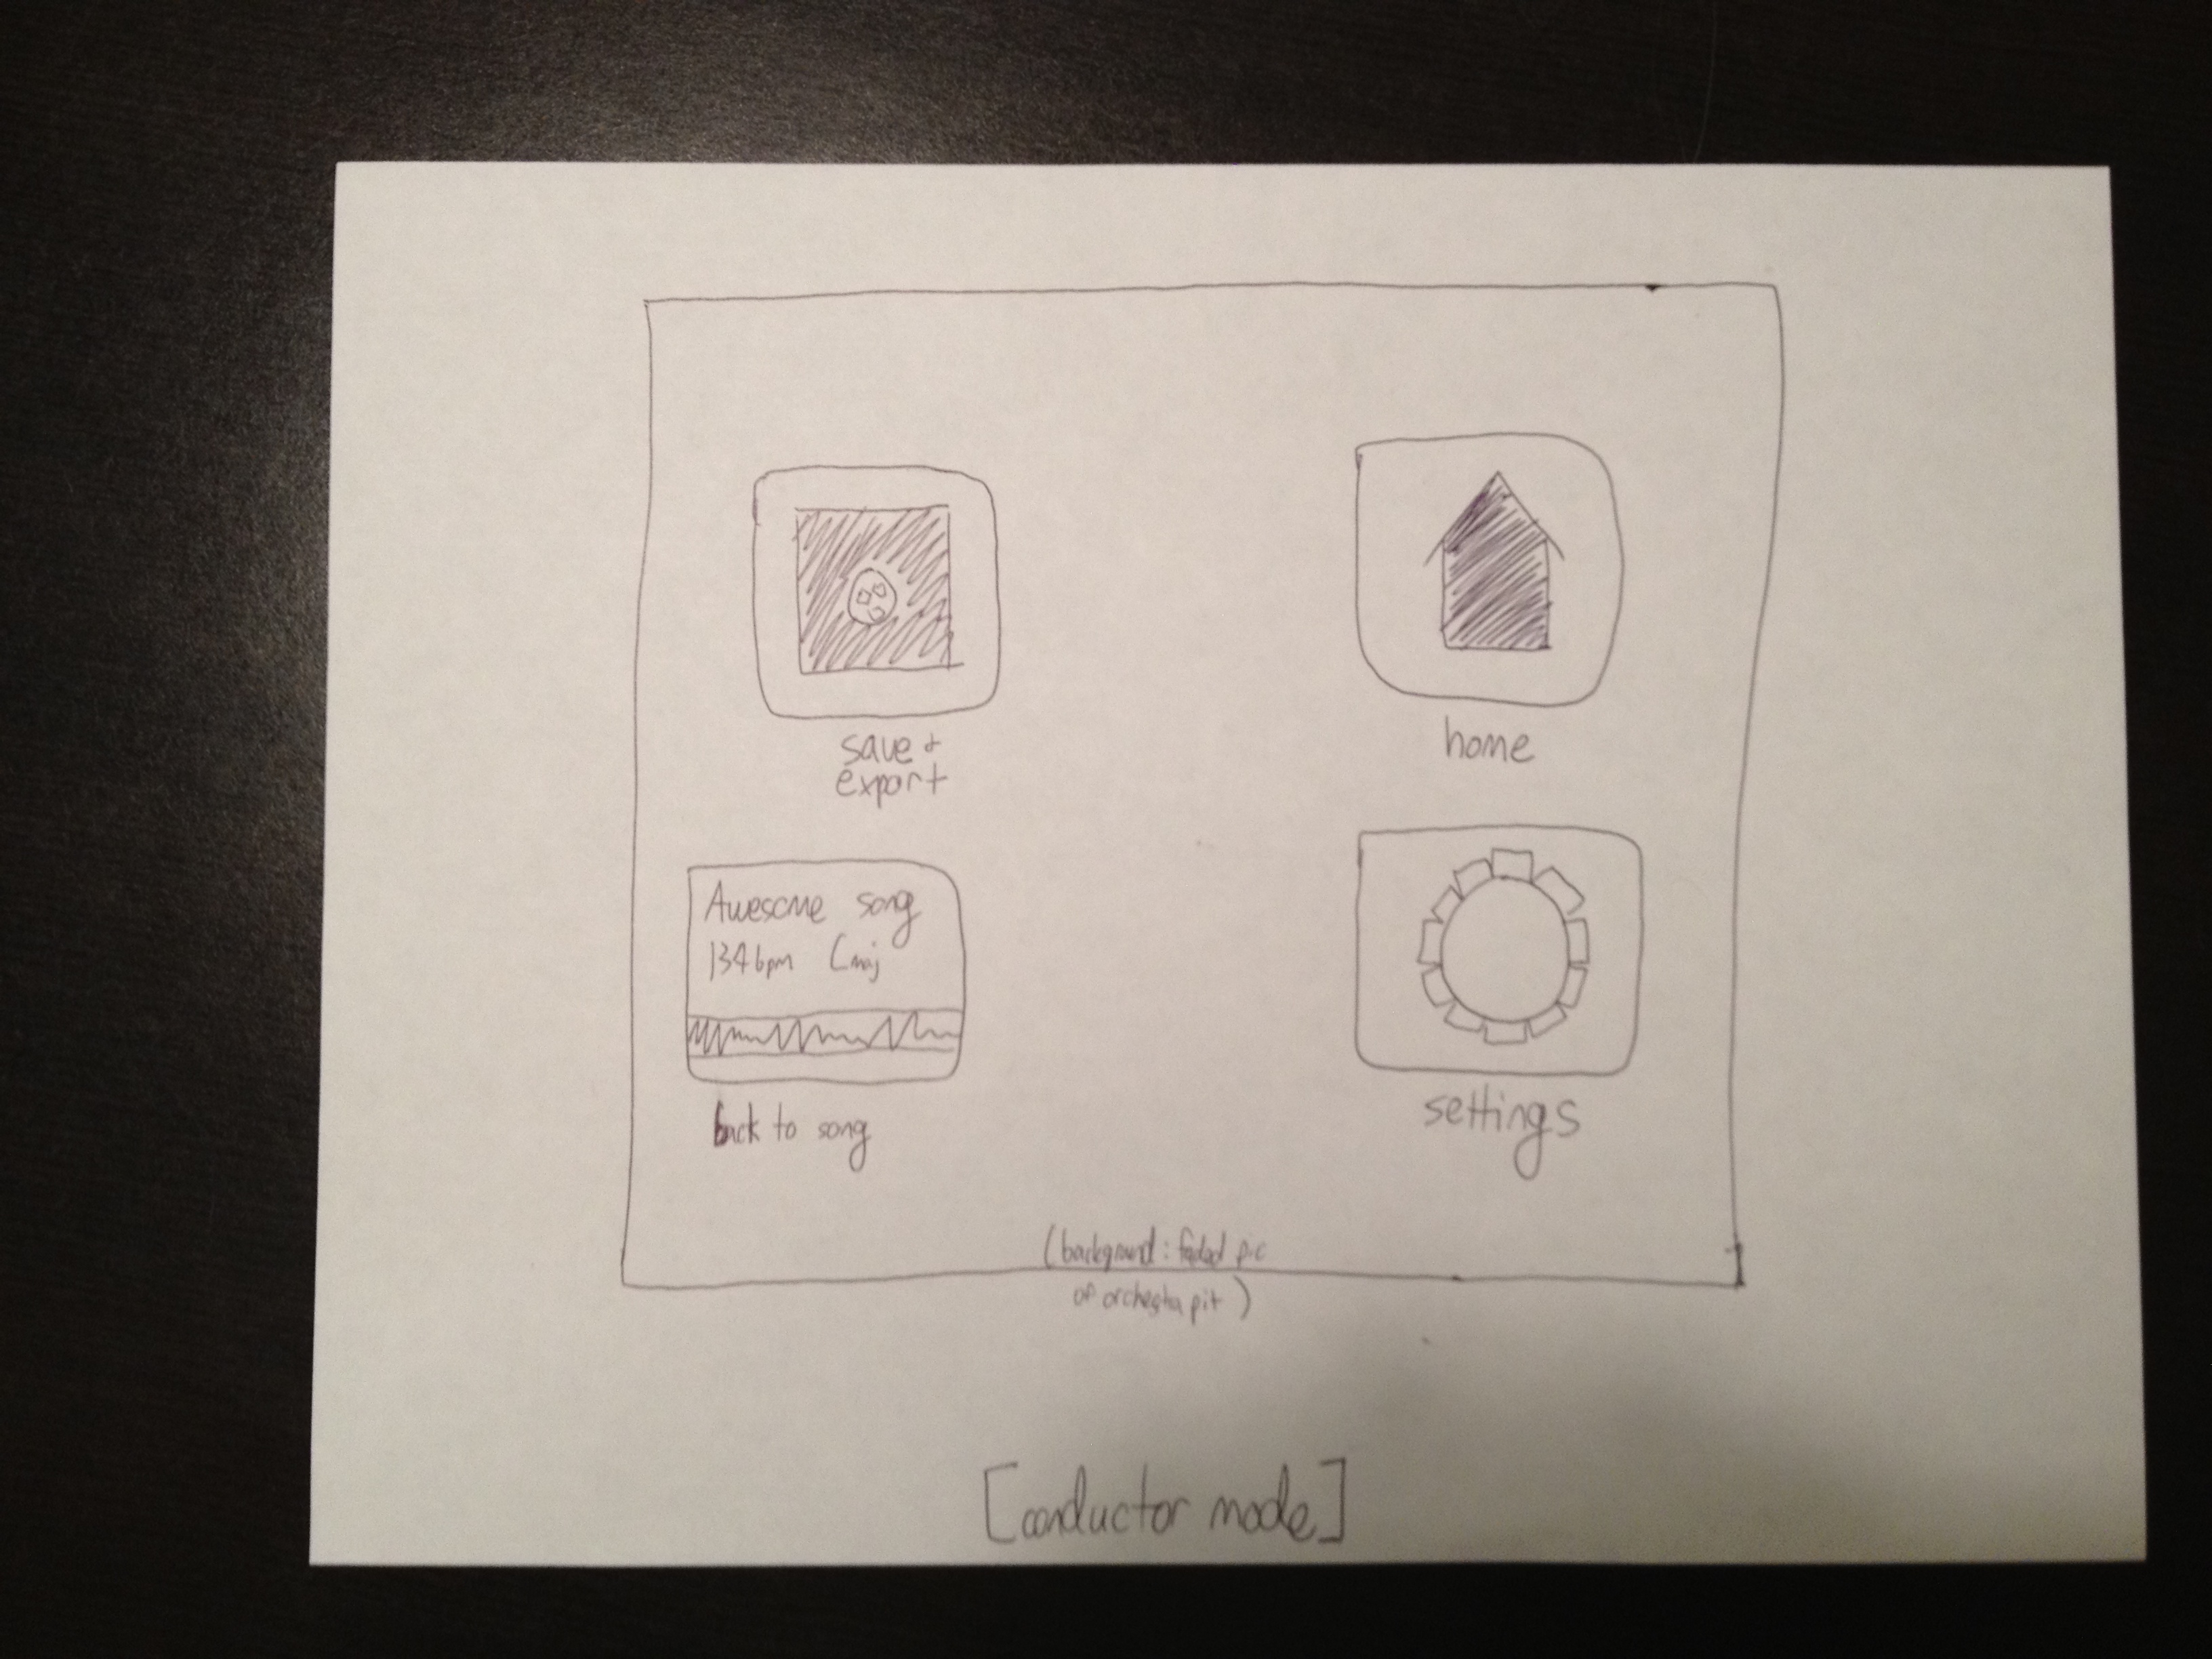 save +
export
home
Awesome song
134 bpm Cmaj
back to song
settings
(background: faded pic
of orchestra pit)
[conductor mode]